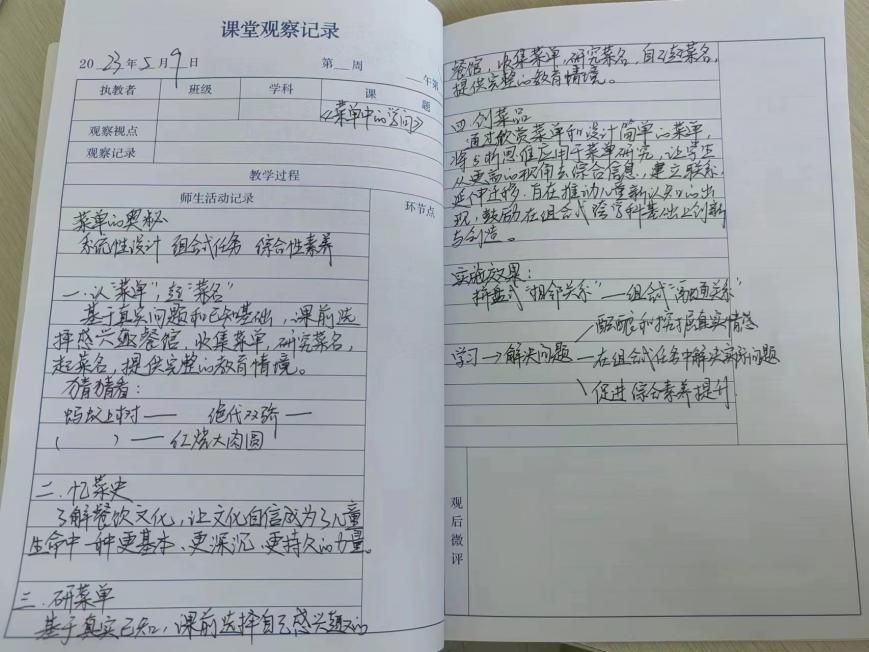 课堂观察记录
2023年5月9日 第 周 午第
执教者 班级 学科 课题
《菜单中的学问》
观察视点
观察记录
教学过程
师生活动记录 环节点
菜单的奥秘
系统性设计 组合式任务 综合性素养
一.认"菜单",起"菜名"
基于真实问题和已知基础,课前选
择感兴趣餐馆,收集菜单,研究菜名,
起菜名,提供完整的教育情境。
猜猜看:
蚂蚁上树—— 绝代双骄—
( )——红烧大肉圆
二.忆菜史
了解餐饮文化,让文化自信成为了儿童
生命中一种更基本、更深沉、更持久的力量。
三.研菜单
基于真实已知,课前选择自己感兴趣的
餐馆,收集菜单,研究菜名,自己起菜名,
提供完整的教育情境。
四.创菜品
通过欣赏菜单和设计简单的菜单,
将分析思维应用于菜单研究,让学生
从更高的视角去综合信息,建立联系,
延伸迁移,旨在推动儿童新认知的出
现,鼓励在组合式跨学科基础上创新
与创造。
实施效果:
拼盘式"相邻关系"—组合式"关系"
和挖掘真实情感
学习→解决问题—在组合式任务中解决实际问题
促进综合素养提升
观后微评